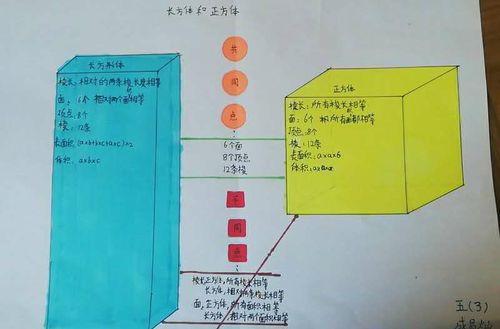 长方体和正方体
长方形体
棱长：相对的两条棱长度相等
面：6个 相对两个面相等
顶点：8个
棱：12条
表面积：(a×b+b×c+a×c)×2
体积：a×b×c
共
同
点
：
6个面
8个顶点
12条棱
不
同
点
：
棱长：正方体，所有棱长相等
长方体，相对两条棱长相等
面：正方体，所有面积相等
长方体，相对两个面积相等
正方体
棱长：所有棱长相等
面：6个 所有面都相等
顶点：8个
棱：12条
表面积：a×a×6
体积：a×a×a
五(3)
成员